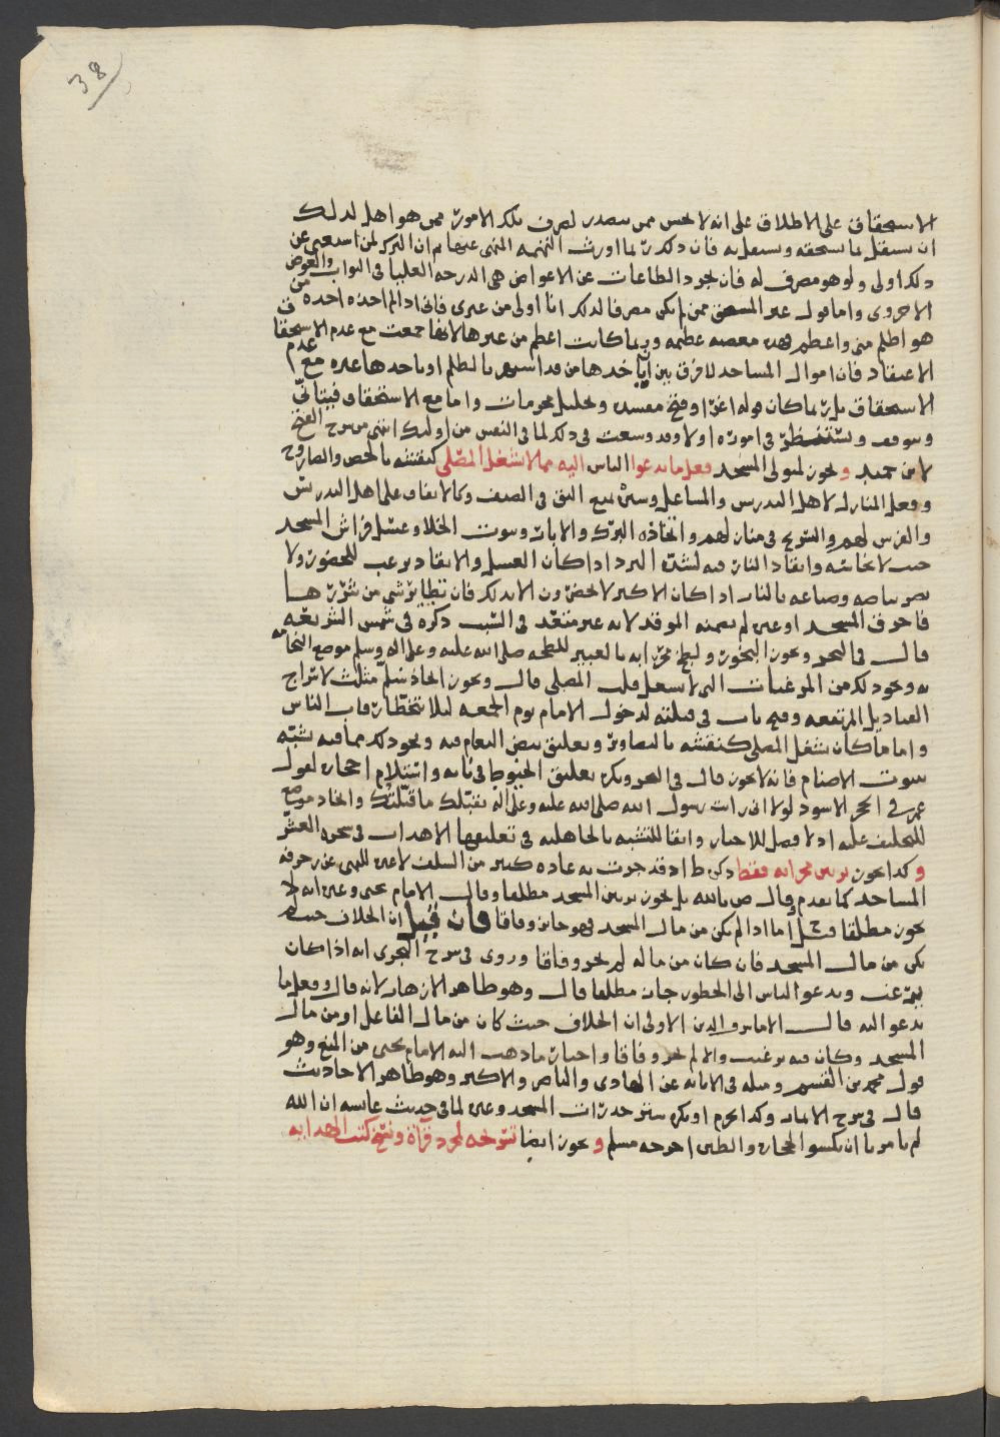 38
الاستحقاق على الاطلاق على انه لا يحسن ممن يتصدر لصرف تلك الامور ممن هو اهل لذلك
ان يستقل بما يستحقه ويستبد به فان ذلك ربما اورث التهمة المنهى عنها ثم ان الترك لمن استغنى عن
ذلك اولى ولو هو مصرف له فان تجرد الطاعات عن الاعواض هى الدرجة العليا فى الثواب والعوض
الاخروى واما قول غير المستحق ممن لم يكن مصرفا لذلك انا اولى من غيرى فانى اذا لم اخذه اخذه من
هو اظلم منى واعظم فهذه معصية عظيمة وربما كانت اعظم من غيرها لانها جمعت مع عدم الاستحقاق
الاعتقاد فان اموال المساجد لا فرق بين ان ياخذها من قد اشتهر بالظلم او ياخذها غيره مع عدم
الاستحقاق بل ربما كان قوله اغرا وفتح مفسدة وتحليل محرمات واما مع الاستحقاق فيتأنى
ويتوقف ويستنظر فى اموره اولا وقد وسعت فى ذلك لما فى النفس من اولئك انتهى من شرح الفتح
لابن حميد و يجوز لمتولى المسجد فعل ما يدعوا الناس اليه مما لا يشغل المصلى كنقشه بالجص والصاروج
وفعل المنارة لاهل التدريس والمساعل وستره تمنع البق فى الصيف وكالانفاق على اهل التدريس
والفرش لهم والترويح فى منازلهم واتخاذه البرك والابار وبيوت الخلا وغسل فراش المسجد
حيث لا نجاسة وايقاد النار فيه لشدة البرد اذا كان الغسل والايقاد يرغب للحضور ولا
يضر بياضه وصناعه بالنار اذا كان الاكثر لا يحضرون الا بذلك فان تطاير شي من شررها
فاحرق المسجد او غيره لم يضمنه الموقد لانه غير متعد فى السبب ذكره فى شمس الشريعة
قال فى البحر ويجوز البخور ولطخ محرابه بالعبير للطخه صلى الله عليه وعلى اله وسلم موضع النخامة
به ونحو ذلك من المرغبات التى لا تشغل قلب المصلى قال ويجوز اتخاذ سلم مثلث لاسراج
القناديل المرتفعة وفتح باب فى قبلته لدخول الامام يوم الجمعة ليلا يتخطا رقاب الناس
واما ما كان يشغل المصلى كنقشه بالتصاوير وتعليق بيض النعام فيه ونحو ذلك مما فيه تشبه
ببيوت الاصنام فانه لا يجوز قال فى البحر ويكره تعليق الخيوط فى بابه واستلام احجاره لقول
عمر فى الحجر الاسود لولا انى رايت رسول الله صلى الله عليه وعلى اله يقبلك ما قبلتك واتخاذ موضع
للتحليف عليه اذ لا فصل للاحبار واتقا للتشبه بالجاهلية فى تعليقها الاهداب فى شجرة العشر
و كذا يجوز تزيين محرابه فقط ذكره ط اذ قد جرت به عادة كثير من السلف لا غيره للنهى عن زخرفة
المساجد كما تقدم وقال ص بالله بل يجوز تزيين المسجد مطلقا وقال الامام يحيى وغيره انه لا
يجوز مطلقا قال اما اذا لم يكن من مال المسجد فهو جائز وفاقا فان قيل ان الخلاف حيث لم
يكن من مال المسجد فان كان من ماله لم يجز وفاقا وروى فى شرح البحرى انه اذا كان
يرغب ويدعو الناس الى الحضور جاز مطلقا قال وهو ظاهر الازهار لانه قال وفعل ما
يدعو اليه قال الامام عز الدين الاولى ان الخلاف حيث كان من مال الفاعل او من مال
المسجد وكان فيه ترغيب والا لم يجز وفاقا واختار ما ذهب اليه الامام يحيى من المنع وهو
قول محمد بن القسم ومثله فى الابانة عن الهادى والناصر والاكثر وهو ظاهر الاحاديث
قال فى شرح الاثمار وكذا يحرم او يكره ستر جدرات المسجد وغيره لما فى حديث عايشه ان الله
لم يامرنا ان نكسوا الحجارة والطين اخرجه مسلم و يجوز ايضا تسريجه لمجرد قرآة ونسخ كتب الهدايه